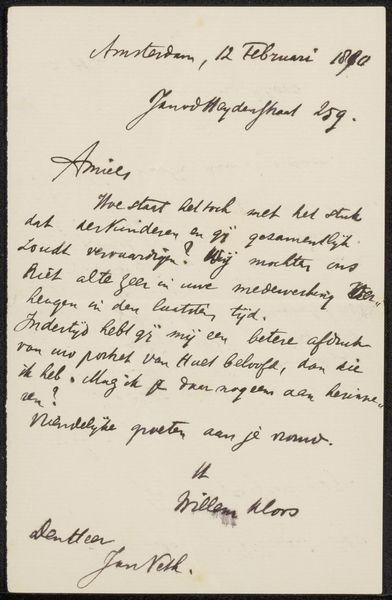 Amsterdam, 12 Februari 1890
Jan v d Heydenstraat 259.
Amice,
Hoe staat het toch met het stuk
dat der Kinderen en gij gezamenlijk
zoudt vervaardigen? Wij mochten ons
niet al te zeer in uwe medewerking ver-
heugen in den laatsten tijd.
Indertijd hebt gij mij een betere afdruk
van uw portret van Huet beloofd, dan die
ik heb. Mag ik je daar nog eens aan herinne-
ren?
Vriendelijke groeten aan je vrouw.
tt
Willem Kloos
Den Heer
Jan Veth.